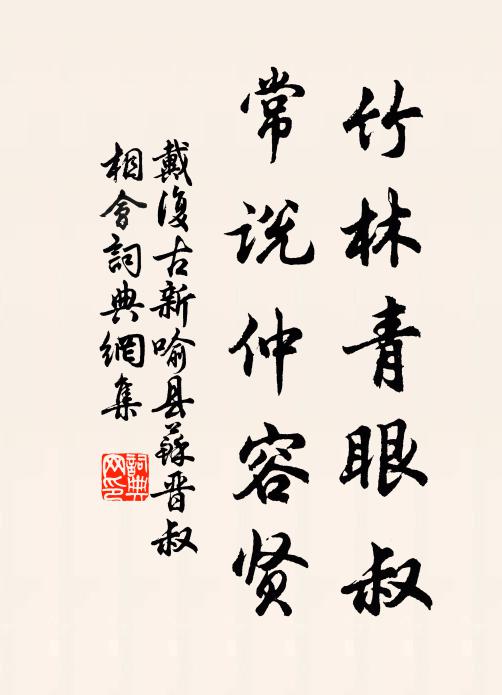 竹林青眼叔
常说仲容贤
戴復古新喻县蘇晋叔
相會詞典網集
詞典网印